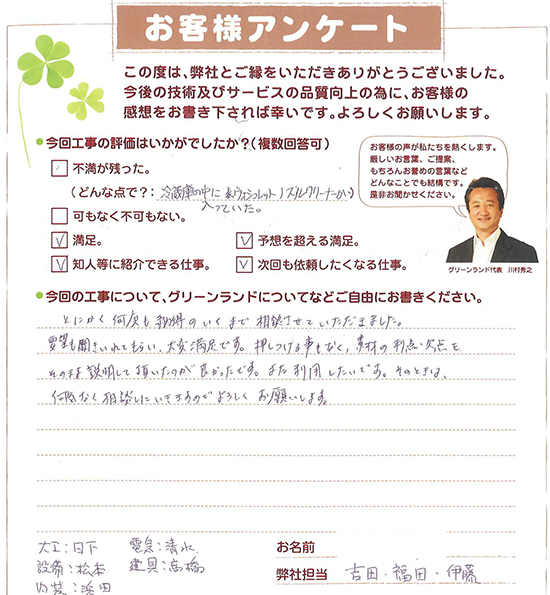 お客様アンケート
この度は、弊社とご縁をいただきありがとうございました。
今後の技術及びサービスの品質向上の為に、お客様の
感想をお書き下されば幸いです。よろしくお願いします。
●今回工事の評価はいかがでしたか?(複数回答可)
不満が残った。
(どんな点で?: 冷蔵庫の中に
入っていた。
可もなく不可もなく。
満足。
予想を超える満足。
知人等に紹介できる仕事。
次回も依頼したくなる仕事。
お客様の声が私たちを熱くします。
厳しいお言葉、ご提案、
もちろんお誉めの言葉など
どんなことでも結構です。
是非お聞かせください。
グリーンランド代表 川村秀之
●今回の工事について、グリーンランドについてなどご自由にお書きください。
とにかく何度も納得のいくまで相談させていただきました。
要望も聞きいれてもらい、大変満足です。押しつける事もなく、素材の利点・欠点を
そのまま説明して頂いたのが良かったです。また利用したいです。そのときは、
何度なく相談しにいきますのでよろしくお願いします。
大工:日下
電気:清水
設備:松本
建具:高橋
内装:浜田
お名前
弊社担当 吉田・福田・伊藤